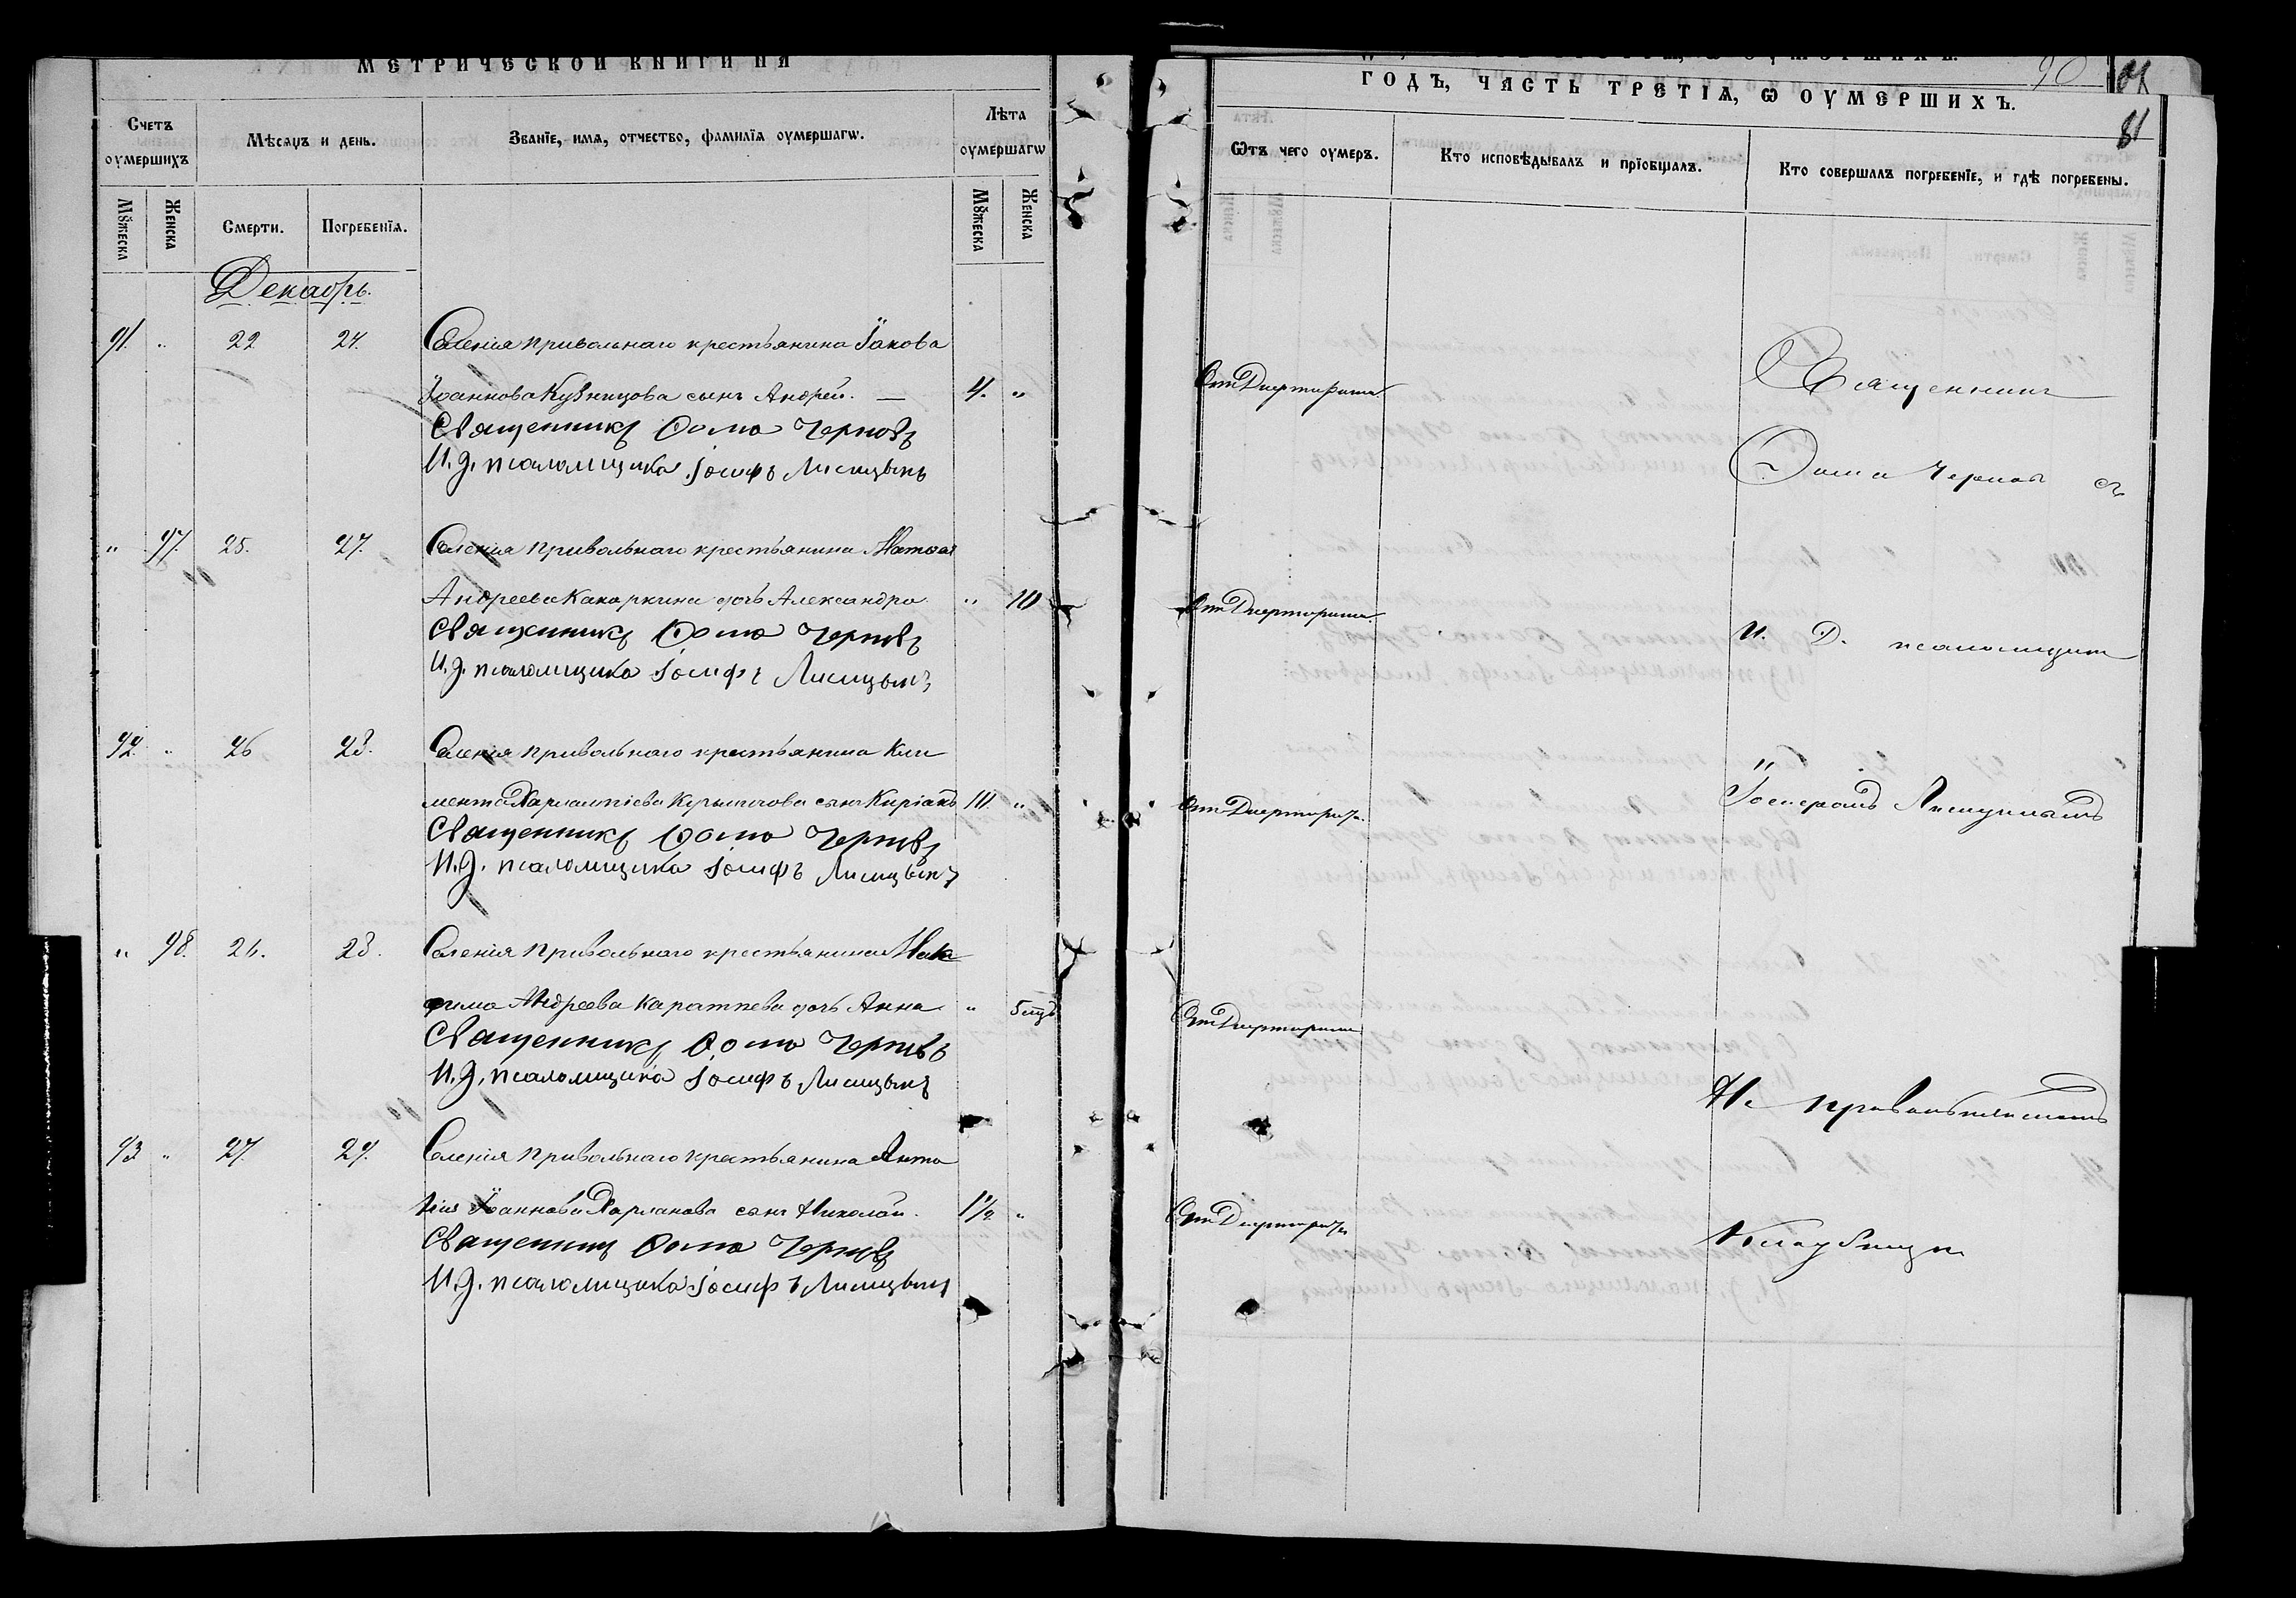 МЕТРИЧЕСКОЙ КНИГИ НА
Счетъ оумершихъ
Мѣсяцъ и день.
Званїе, имя, отчество, фамилїя оумершагѡ.
Лѣта оумершагѡ
Мꙋжеска
Женска
Смерти.
Погребенїя.
Мꙋжеска
Женска
Декабрь.
91. " 22 24. Селенія Привольнаго крестьянина Іакова
Іоаннова Кузнецова сынъ Андрей. — 4. "
Священникъ Ѳома Черновъ
И. д. псаломщика Іосифъ Лисицынъ
" 97. 25. 27. Селенія Привольнаго крестьянина Матвея
Андреева Какоркина дочь Александра " 10
Священникъ Ѳома Черновъ
И. д. псаломщика Іосифъ Лисицынъ
92. " 26 28. Селенія Привольнаго крестьянина Кли
мента Харлампіева сынъ Киріакъ 10. "
Священникъ Ѳома Черновъ
И. д. псаломщика Іосифъ Лисицынъ
" 98. 26. 28. Селенія Привольнаго крестьянина
Андреева дочь Анна " 5 мцъ
Священникъ Ѳома Черновъ
И. д. псаломщика Іосифъ Лисицынъ
93 " 27. 29. Селенія Привольнаго крестьянина Анто
нія Іоаннова Харланова сынъ Николай. 1½ "
Священникъ Ѳома Черновъ
И. д. псаломщика Іосифъ Лисицынъ
90
ГОДЪ, ЧАСТЬ ТРЕТІЯ, Ѡ ОУМЕРШИХЪ.
81
Ѿтъ чего оумеръ.
Кто исповѣдывалъ и прїобщалъ.
Кто совершалъ погребенїе, и гдѣ погребены.
Отъ Дифтерита.
Отъ Дифтерита.
Отъ Дифтерита.
Отъ Дифтерита
Отъ Дифтерита
Священникъ
Ѳома Черновъ съ
И. Д. псаломщика
Іосифомъ Лисицынымъ
На Привольненскомъ
Кладбищѣ